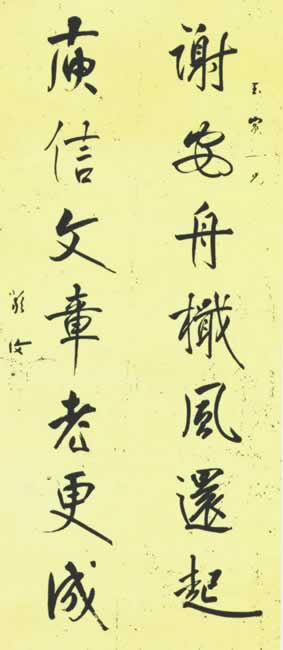 謝安舟檝風還起
庾信文章老更成